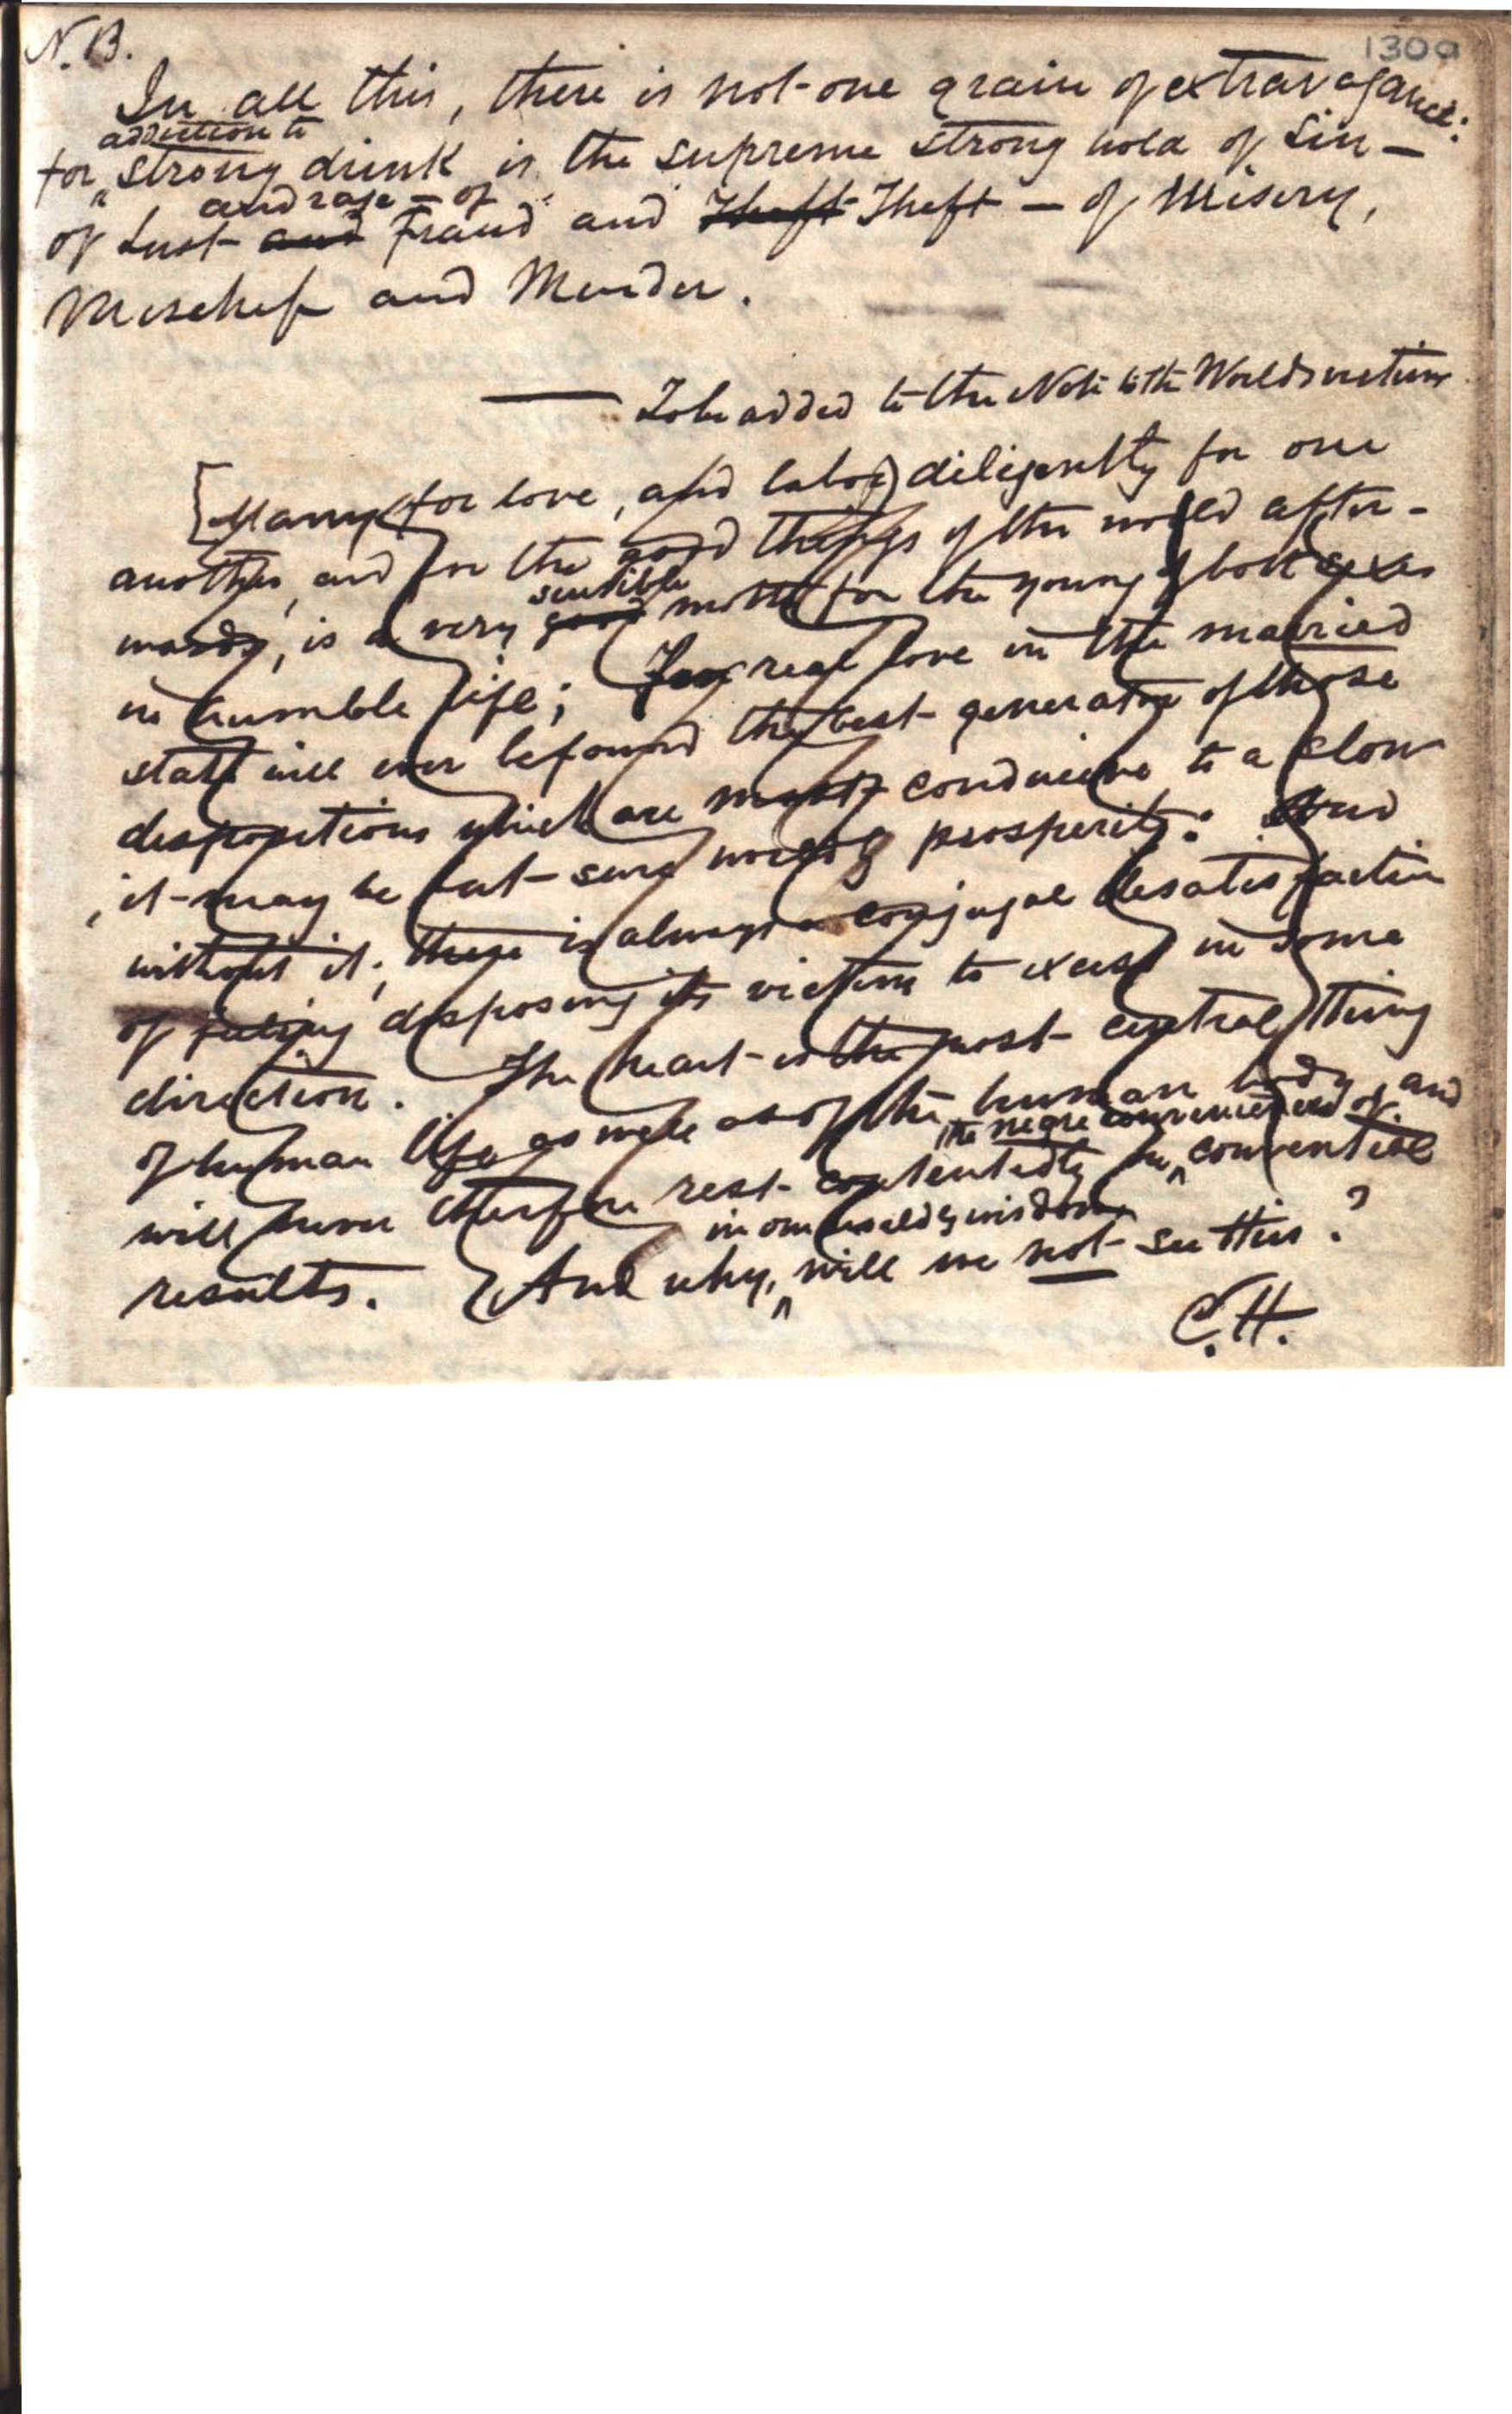 N.B.
1300
In all this, there is not one grain of extravagance:
addiction to
for strong drink is the supreme strong hold of Sin —
and rage — of
of Lust and Fraud and Theft Theft — of Misery,
Mischief and Murder.
— To be added to the Note to the World's victims
[Marry for love, and labor diligently for one
another, and for the good things of the world after-
wards, is a very good motto for the young of both sexes
sensible
in humble life; For real love in the married
state will ever be found the best generator of those
dispositions which are mostly conducive to a slow
it may be but sure worldly prosperity: And
without it, there is always a conjugal disatisfaction
of feeling disposing its victims to excess in some
direction. The heart is the most central thing
of human life, as well as of the human body, and
the negre conveniences of
will never therefore rest contentedly in conventional
in our worldly wisdom
results. And why, will we not see this?
C.H.